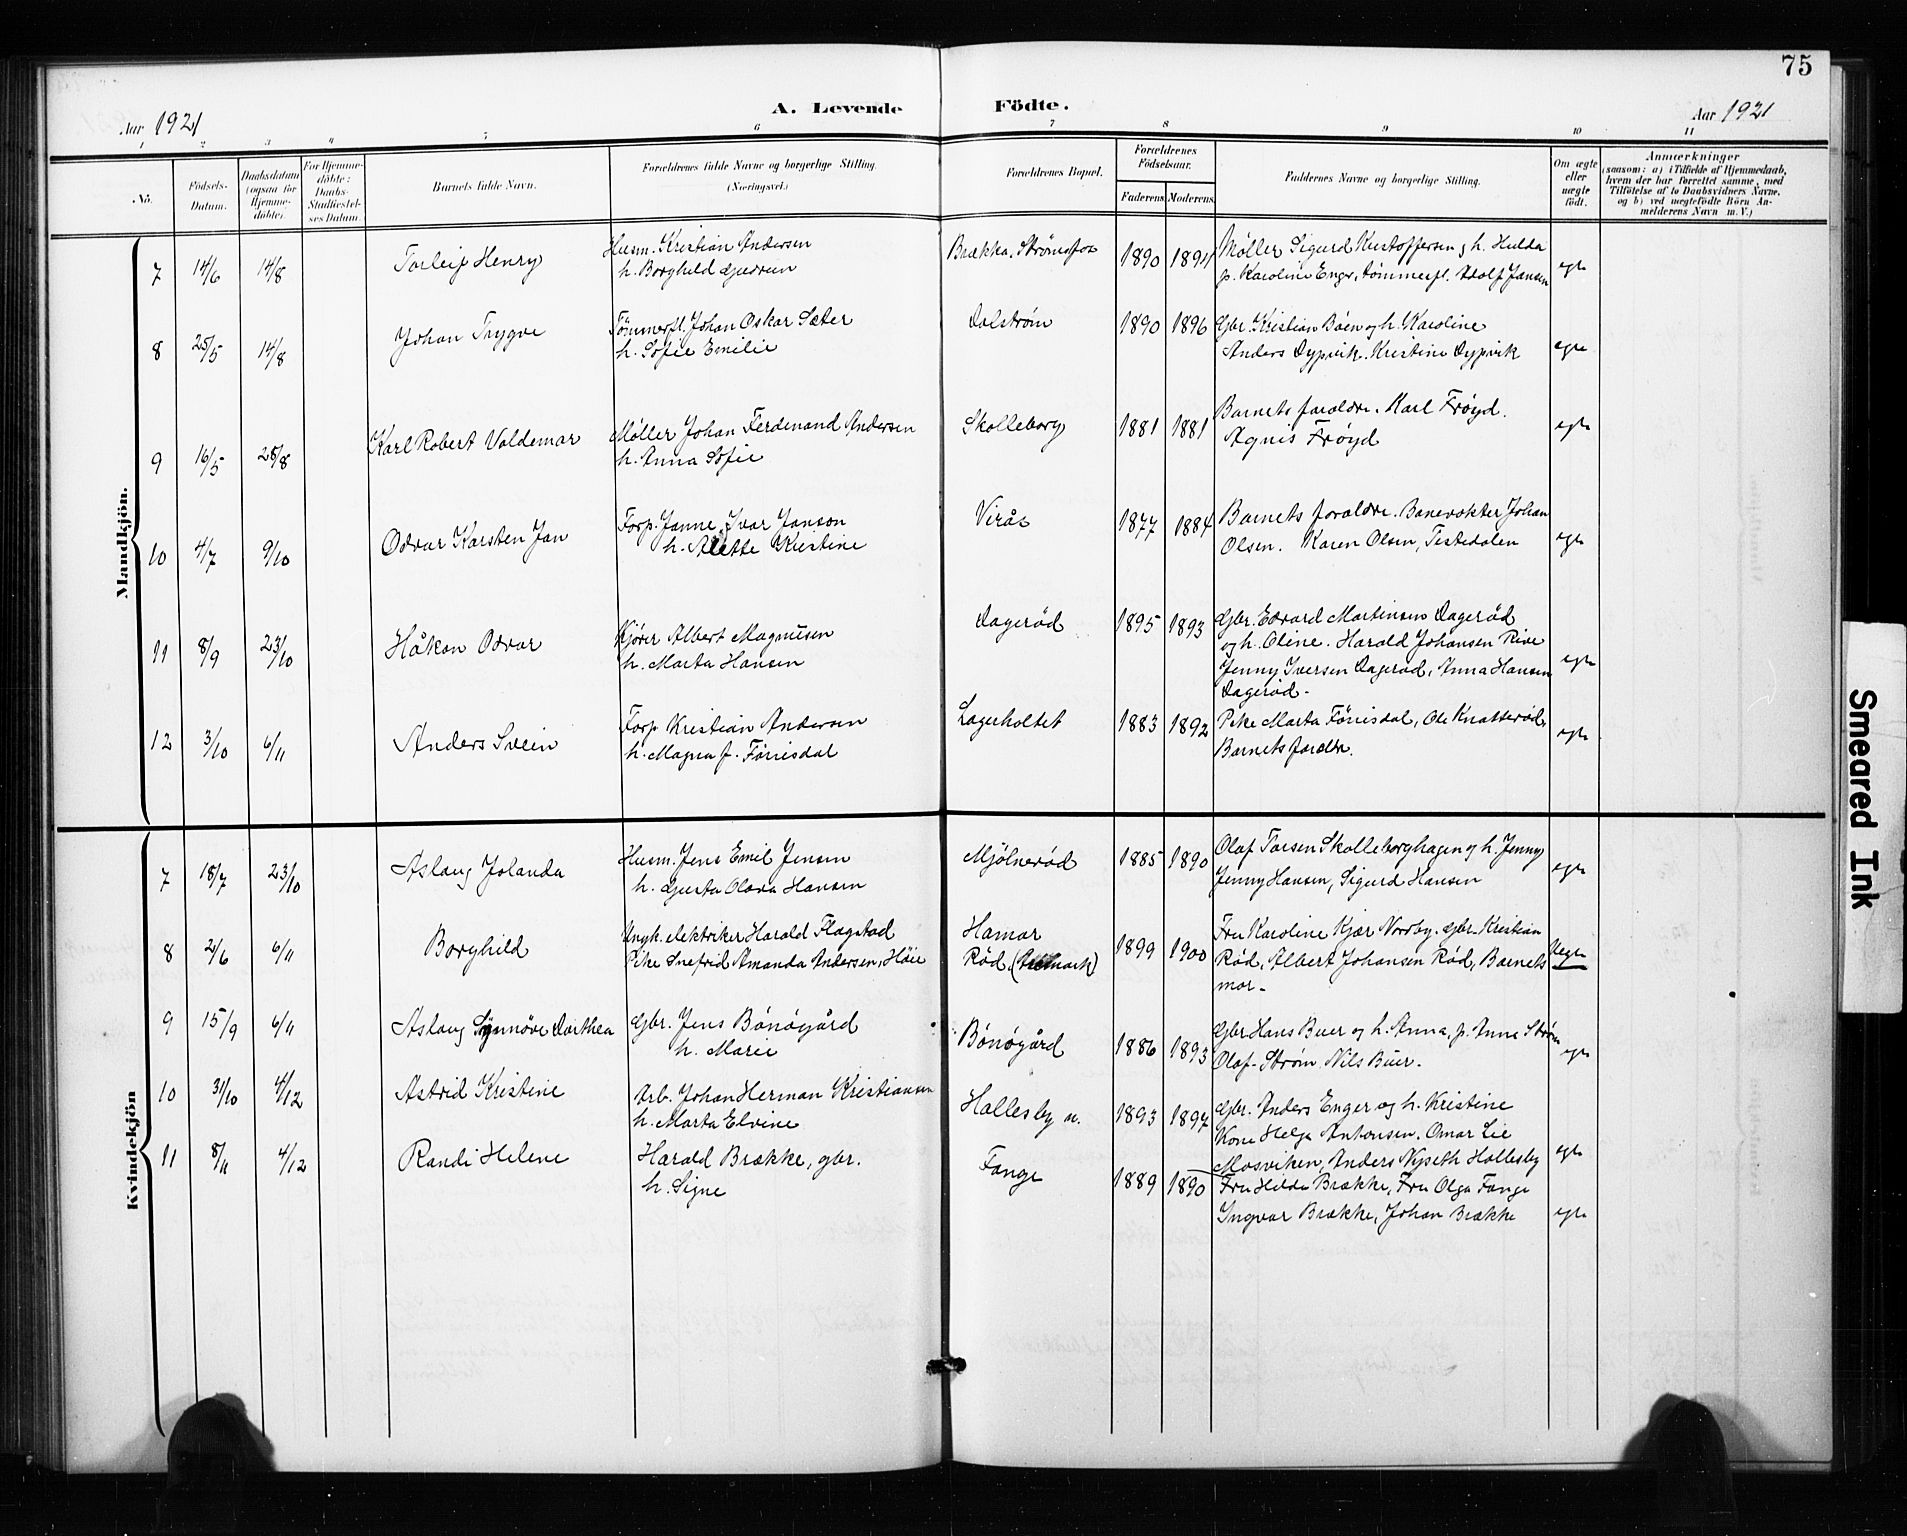 75
A. Levende Födte.
Aar 1921
Aar 1921
1 2 3 4 5 6 7 8 9 10 11
No.
Födsels-Datum.
Daabsdatum (ogsaa for Hjemme-döbte).
For Hjemme-döbte: Daabs-Stadfæstel-ses Datum.
Barnets fulde Navn.
Forældrenes fulde Navne og borgerlige Stilling. (Næringsvei.)
Forældrenes Bopæl.
Forældrenes Födselsaar.
Faderens Moderens
Faddernes Navne og borgerlige Stilling.
Om ægte eller uægte födt.
Anmærkninger
(saasom: a) i Tilfælde af Hjemmedaab, hvem der har forrettet samme, med Tilföielse af to Daabsvidners Navne, og b) ved uægtefödte Börn An-melderens Navn m. V.)
Mandkjön.
7 14/6 14/8 Torleif Henry
Husm. Kristian Andersen
h. Borghild Gudrun
Brækka, Strømsfos 1890 1891
Møller Sigurd Kristoffersen og h. Hulda
p. Karoline Enger, tømmerfl. Adolf Jansen
egte
8 25/5 14/8 Johan Trygve
Tømmerfl. Johan Oskar Sæter
h. Sofie Emilie
Dalstrøm 1890 1896
Gbr. Kristian Böen og h. Karoline
Anders Dypvik. Kristine Dypvik
egte
9 16/5 28/8 Karl Robert Valdemar
Møller Johan Ferdinand Andersen
h. Anna Sofie
Skolleborg 1881 1881
Barnets foraldre. Karl Frøyd.
Agnis Frøyd
egte
10 4/7 9/10 Odvar Karsten Jan
Forp. Janne Ivar Janson
h. Alette Kristine
Virås 1877 1884
Barnets foraldre. Banevokter Johan
Olsen. Karen Olsen, Tistedalen
egte
11 8/9 23/10 Håkon Odvar
Kjører Albert Magnusen
h. Marta Hansen
Dagerød 1895 1893
Gbr. Edvard Martinsen Dagerød
og h. Oline. Harald Johansen Rive
Jenny Iversen Dagerød, Anna Hansen
Dagerød.
egte
12 3/10 6/11 Anders Svein
Forp Kristian Andersen
h. Magna f. Förrisdal
Lagerholtet 1883 1892
Pike Marta Förrisdal, Ole Knatterød
Barnets foreldre.
egte
Kvindekjön
7 18/7 23/10 Aslaug Jolanda
Husm. Jens Emil Jensen
h. Gjerta Olava Hansen
Mjölnerød 1885 1890
Olaf Torsen Skolleborghagen og h. Jenny
Jenny Hansen, Sigurd Hansen
egte
8 2/6 6/11 Borghild
Ungk. elektriker Harald Flagstad
Pike Snefrid Amanda Andersen, Höie
Hamar
Rød, (Aremark) 1899 1900
Fru Karoline Kjær Nordby. Gbr. Kristian
Rød, Albert Johansen Rød, Barnets
mor.
Uegte
9 15/9 6/11 Aslaug Synnöve Dorthea
Gbr. Jens Bönögård
h. Marie
Bönögård 1886 1893
Gbr Hans Buer og h. Anna, p. Anna Strøm
Olaf Strøm Nils Buer.
egte
10 31/10 4/12 Astrid Kristine
Arb. Johan Herman Kristiansen
h. Marta Elvine
Hallesby n. 1893 1897
Gbr. Anders Enger og h. Kristine
Kone Helga Antonsen. Omar Lie
Mosviken, Anders Nyseth Hallesby
egte
11 8/11 4/12 Randi Helene
Harald Brække, gbr.
h. Signe
Fange 1889 1890
Fru Hilda Brække, Fru Olga Fange
Ingvar Brække, Johan Brække
egte
Smeared Ink